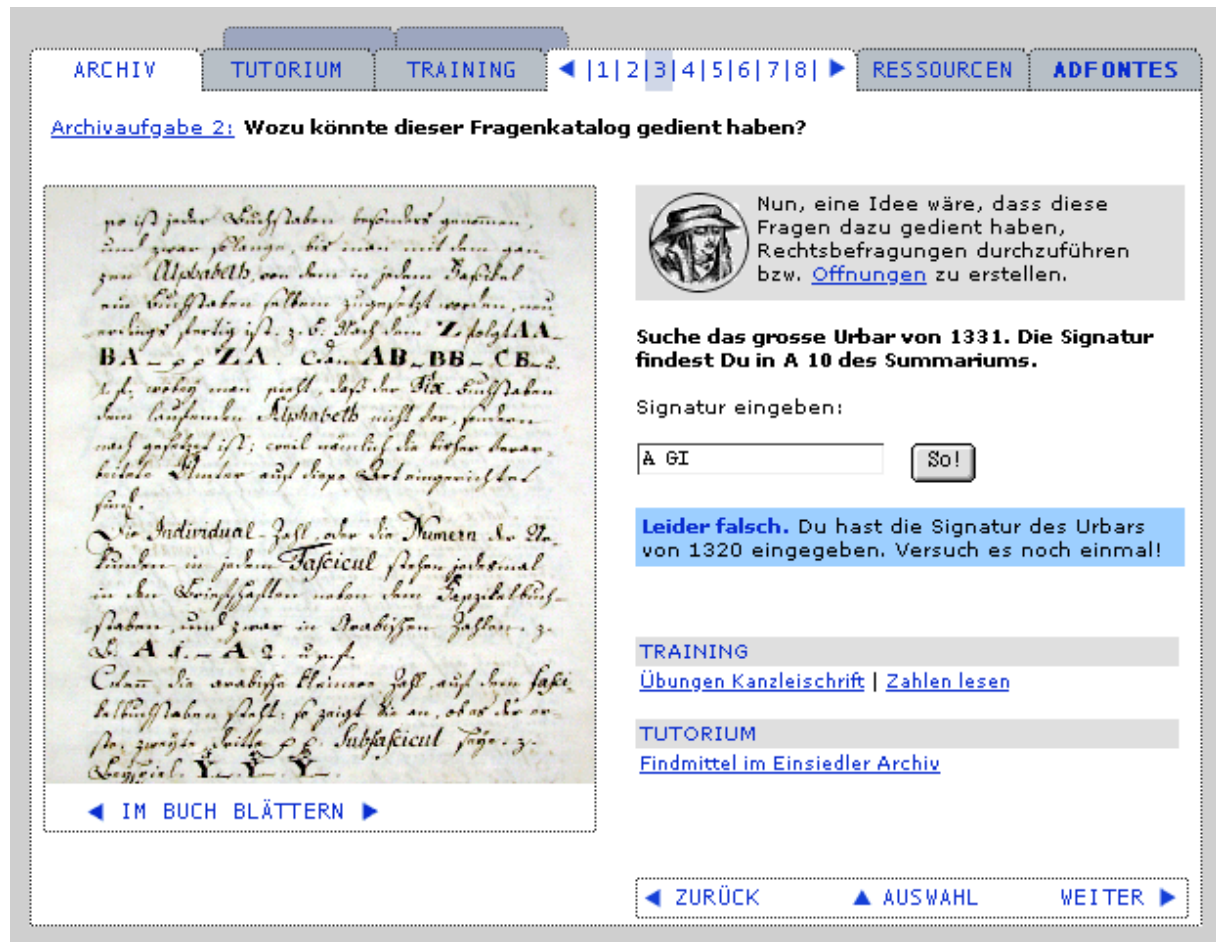 ARCHIV TUTORIUM TRAINING ◀ |1|2|3|4|5|6|7|8| ▶ RESSOURCEN ADFONTES
Archivaufgabe 2: Wozu könnte dieser Fragenkatalog gedient haben?
so ist jeder Buchstaben besonders genommen,
und zwar solange, bis man mit dem gan-
zen Alphabeth, von dem in jedem Faszikel
ein Buchstaben selbem zugesetzt worden, neu
erdings fertig ist. z. B. Nach dem Z. folgt AA
BA ZA. AB BB CB
man sieht, daß der Fix-Buchstaben
dem laufenden Alphabeth nicht vor, sondern
nach gesetzt ist; weil nämlich die bisher verar-
beitete auf diese Art eingerichtet
sind.
Die Individual-Zahl, oder die Numern der Ur-
kunden in jedem Fascicul stehen jedesmal
in den Briefschaften neben dem Faszikelbuch-
staben, und zwar in Arabischen Zahlen. z.
B. A 1. A 2.
die arabische kleinere Zahl auf dem Faszi-
kelbuchstaben steht: so zeigt sie an, ob es der er-
ste, zweyte, dritte Subfascicul seye. z.
Beyspiel. Y Y Y
◀ IM BUCH BLÄTTERN ▶
Nun, eine Idee wäre, dass diese
Fragen dazu gedient haben,
Rechtsbefragungen durchzuführen
bzw. Offnungen zu erstellen.
Suche das grosse Urbar von 1331. Die Signatur
findest Du in A 10 des Summariums.
Signatur eingeben:
A GI So!
Leider falsch. Du hast die Signatur des Urbars
von 1320 eingegeben. Versuch es noch einmal!
TRAINING
Übungen Kanzleischrift | Zahlen lesen
TUTORIUM
Findmittel im Einsiedler Archiv
◀ ZURÜCK ▲ AUSWAHL WEITER ▶